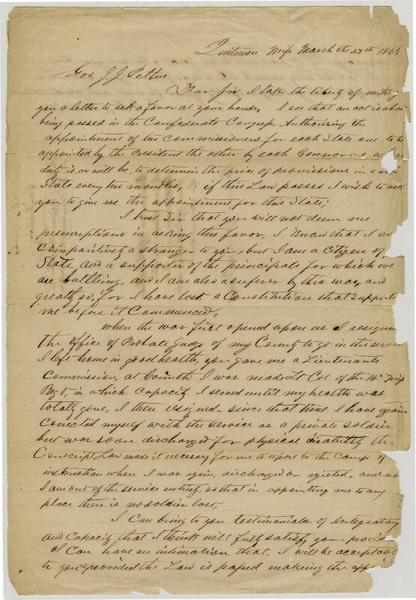 Quitman Miss March the 27th 1863
Gov J. J. Pettus
Dear Sir I take the liberty of writing
you a letter to ask a favor at your hands, I see that an act is about
being passed in the Confederate Congress Authorising the
appointment of two Commissioners for each State one to be
appointed by the President the other by each Governor
duty it is or will be, to determine the price of provisions in each
State every two months, if this Law passes I wish to ask
you to give me the appointment for this State;
I trust Sir that you will not deem me
presumptious in asking this favor, I know that I am
Comparitively a stranger to you, but I am a Citizen of
State, and a supporter of the principals for which we
are battling, and I am also a suferer by this war, and
greatly so, for I have lost a Constitution that supported
me before it Commenced,
When the war first opened upon us I resigned
the office of Probate Judge of my County to go in the service
I left home in good health, you gave me a Lieutenants
Commission, at Corinth I was made Lt Col of the Miss
Regt, in which Capacity I served until my health was
totally gone, I then resigned since that time I have again
Conected myself with the service as a private soldier
but was soon discharged for physical disability the
Conscript Law made it necessary for me to report to the Camp of
instruction when I was again discharged or rejected, and
I am out of the service entirely, so that in appointing me to any
place there is no soldier lost,
I Can bring to you testimonials of integrity
and Capacity that I think will fully satisfy you
I Can have an intimation that I will be acceptable
to you provided the Law is passed making the